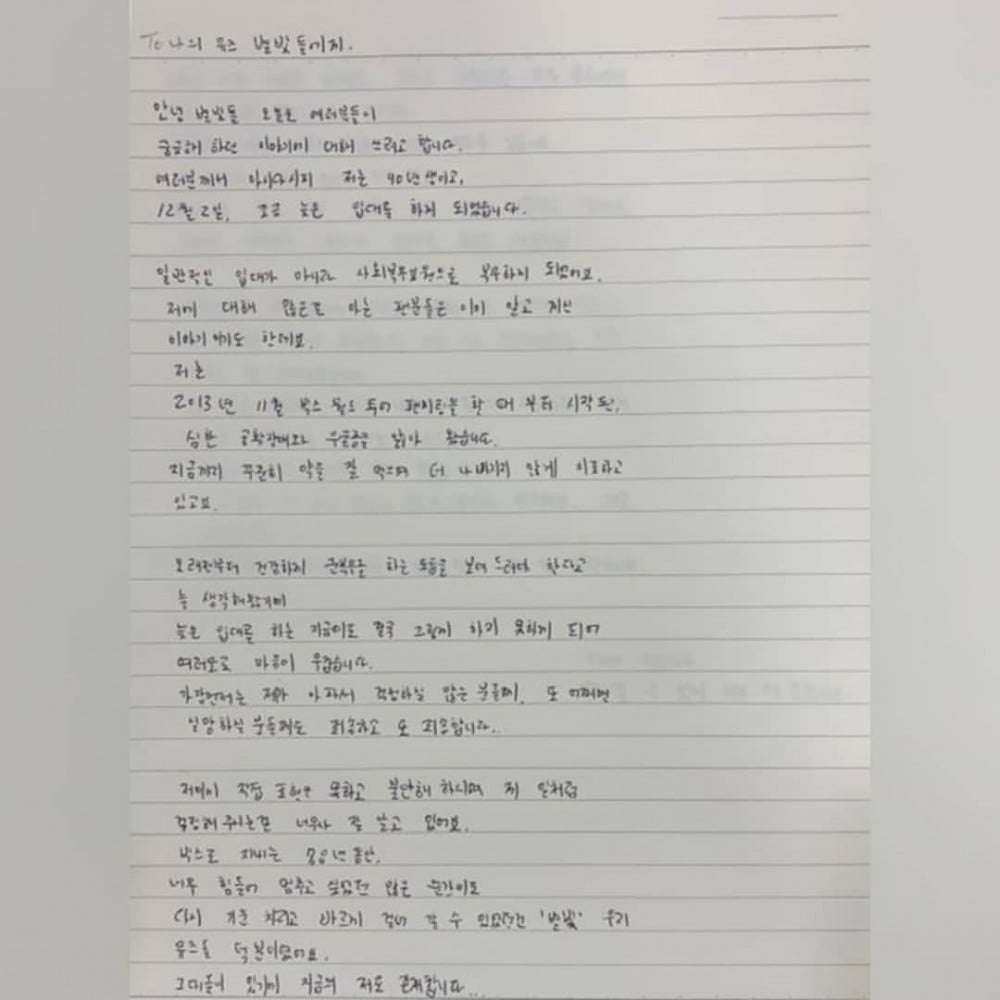 To 나의 유즈 별빛들에게.
안녕 별빛들 오늘은 여러분들이
궁금해 하던 이야기에 대해 쓰려고 합니다.
여러분께서 아시다시피 저는 90년생이고,
12월 2일, 조금 늦은 입대를 하게 되었습니다.
일반적인 입대가 아니라 사회복무요원으로 복무하게 되었어요.
저에 대해 많은걸 아는 팬분들은 이미 알고 계신
이야기 이기도 한데요.
저는
2013년 11월 빅스 월드 투어 팬미팅을 할 때 부터 시작된,
심한 공황장애와 우울증을 앓아 왔습니다.
지금까지 꾸준히 약을 잘 먹으며 더 나빠지지 않게 치료하고
있고요.
오래전부터 건강하게 군복무를 하는 모습을 보여 드려야 한다고
늘 생각해왔기에
늦은 입대를 하는 지금에도 결국 그렇게 하지 못하게 되어
여러모로 마음이 무겁습니다.
가장먼저는 제가 아파서 걱정하실 많은 분들께, 또 어쩌면
실망하실 분들께도 죄송하고 또 죄송합니다..
저에게 직접 표현은 못하고 불안해 하시며 제 일처럼
걱정해 주시는걸 너무나 잘 알고 있어요.
빅스로 지내는 동안,
너무 힘들어 멈추고 싶었던 많은 순간에도
다시 기운 차리고 바르게 걸어 갈 수 있었던건 '별빛' 우리
유즈들 덕분이었어요.
그대들이 있기에 지금의 저도 존재합니다...